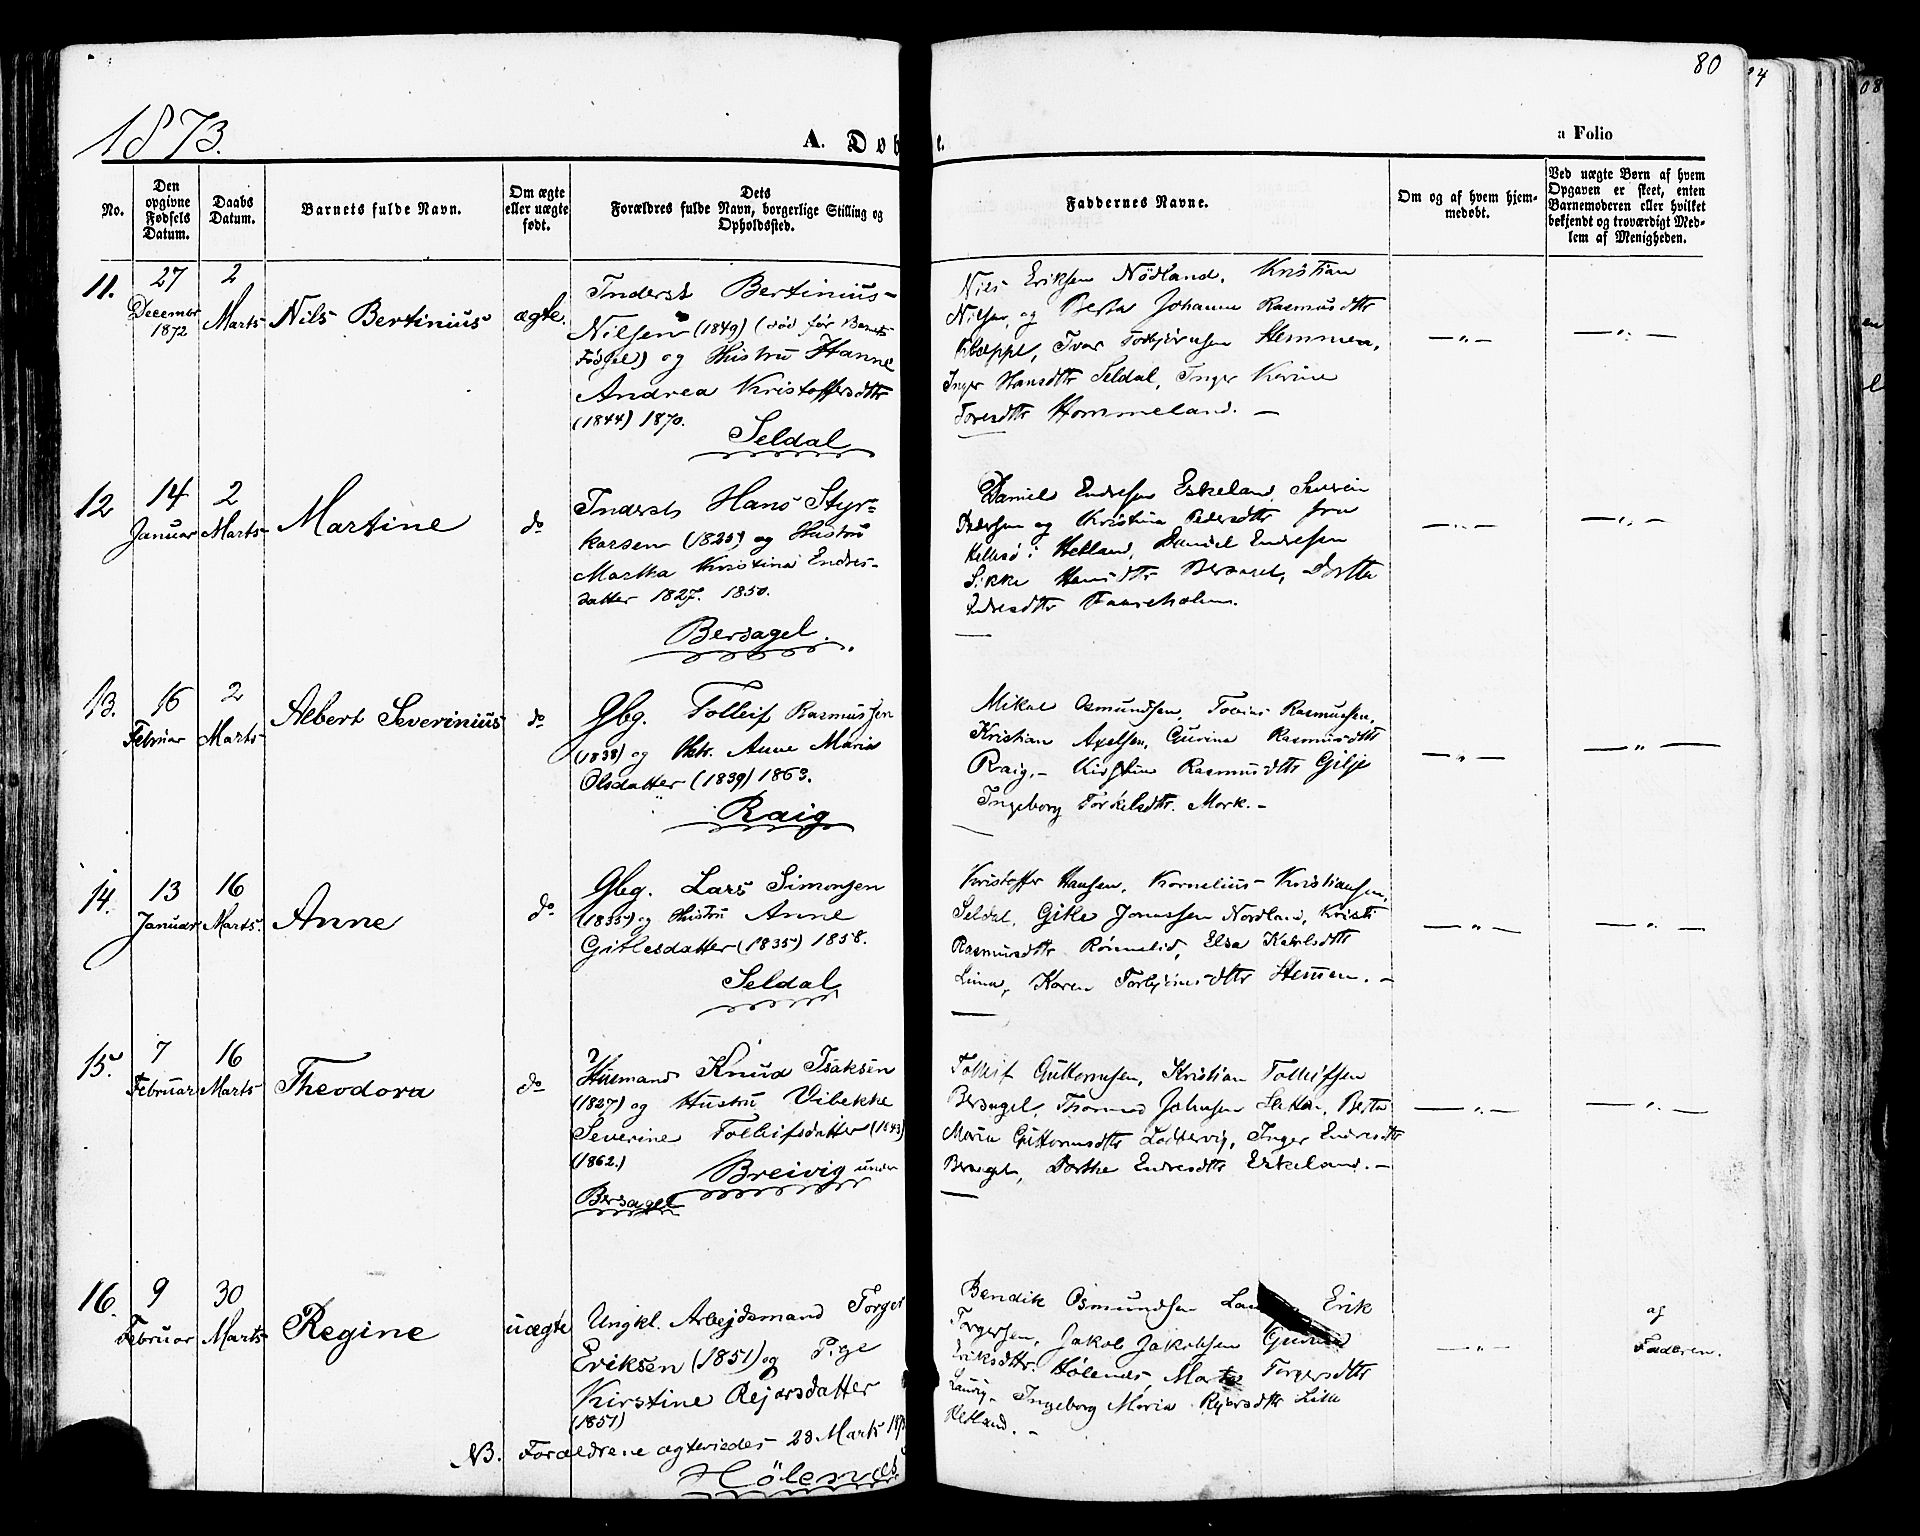 80
1873.
A. Døb
t.
a Folio
No.
Den opgivne Fødsels Datum.
Daabs Datum.
Barnets fulde Navn.
Om ægte eller uægte født.
Dets Forældres fulde Navn, borgerlige Stilling og Opholdssted.
Faddernes Navne.
Om og af hvem hjemmedøbt.
Ved uægte Børn af hvem Opgaven er skeet, enten Barnemoderen eller hvilket bekjendt og troværdigt Medlem af Menigheden.
11.
27 Decemer 1872
2 Marts
Nils Bertinius
ægte.
Inderst Bertinius
Nilsen (1849) (død før Barnets
Fødsel) og Hustru Hanne
Andrea Kristoffersdttr
(1844) 1870.
Seldal
Nils Eriksen Nödland, Kristian
Nilsen, og Berta Johanne Rasmusdttr
Kleppe, Ivar Torbjörnsen Hemmen,
Inger Hansdttr Seldal, Inger Karine
Toresdttr Hommeland. —
— „ —
— „ —
12
14 Januar
2 Marts
Martine
do
Inderst Hans Styr-
karsen (1825) og Hustru
Martha Kristina Endres-
datter 1827. 1850.
Bersagel.
Daniel Endresen Eskeland, Severin
Pedersen og Kristina Pedersdttr fra
i Hetland, Daniel Endresen
Sikke Hansdttr Bersagel, Dorthe
Endresdttr
— „ —
— „ —
13.
16 Februar
2 Marts
Albert Severinius
do
Gbg. Tolleif Rasmussen
(1838) og Hstr. Anne Maria
Olsdatter (1839) 1863.
Raig
Mikal Osmundsen, Tobias Rasmussen,
Kristian Axelsen, Gurine Rasmusdttr
Raig. — Kirstine Rasmusdttr Gilje
Ingeborg Torkelsdttr. Mork. —
— „ —
— „ —
14.
13 Januar
16 Marts.
Anne
do
Gbg. Lars Simonsen
(1835) og Hustru Anne
Gitlesdatter (1835) 1858.
Seldal
Kristoffer Hansen, Kornelius Kristiansen,
Seldal, Gitle Jonassen Nordland, Kristi
Rasmusdttr Rönnelid, Elsa Ketilsdttr
Lima, Karen Torbjörnsdttr Hemmen. —
— „ —
— „ —
15.
7 Februar
16 Marts
Theodora
do
Husmand Knud Isaksen
(1827) og Hustru Vibekke
Severine Tolleifsdatter (1843)
(1862.)
Breivig under
Bersagel
Tolleif Guttormsen, Kristian Tolleifsen
Bersagel, Thomas Johnsen Berta
Maria Guttormsdttr Loddervig, Inger Endresdttr
Bersagel, Dorthe Endresdttr Eskeland. —
— „ —
— „ —
16.
9 Februar
30 Marts
Regine
uægte
Ungkl. Arbejdsmand Torger
Eriksen (1851) og Pige
Kirstine Rejarsdatter
(1851)
NB. Forældrene ægteviedes 28 Marts
Hölesnæs
Bendik Osmundsen Erik
Torgersen, Jakob Jakobsen
Eriksdttr. Hölesnæs, Marta Torgersdttr
Ingeborg Maria Rejarsdttr Lille
Hetland. —
— „ —
af Faderen.